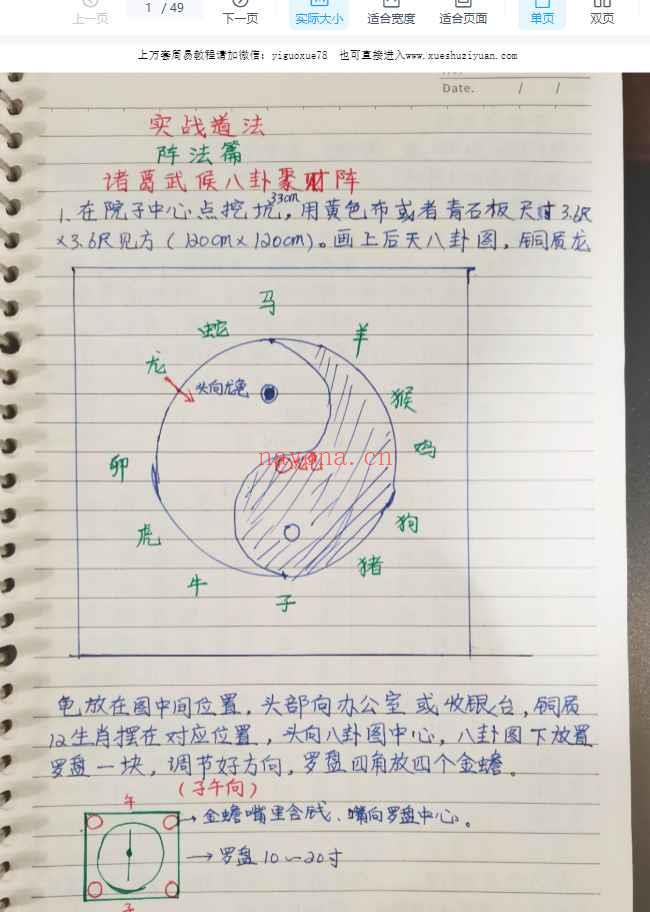 上一页
1 / 49
下一页
实际大小
适合宽度
适合页面
单页
双页
上万套周易教程请加微信: yiguoxue78 也可直接进入www.xueshuziyuan.com
Date. / /
实战道法
阵法篇
诸葛武候八卦聚财阵
33cm
1.在院子中心点挖坑,用黄色布或者青石板尺寸3.6尺
×3.6尺见方(120cm×120cm)。画上后天八卦图,铜质龙
马
蛇
羊
龙
头向龙龟
猴
鸡
nayona.cn
卯
狗
虎
猪
牛
子
龟放在图中间位置,头部向办公室或收银台,铜质
12生肖摆在对应位置,头向八卦图中心,八卦图下放置
罗盘一块,调节好方向,罗盘四角放四个金蟾。
(子午向)
午
金蟾嘴里含钱、嘴向罗盘中心。
罗盘10~20寸
子